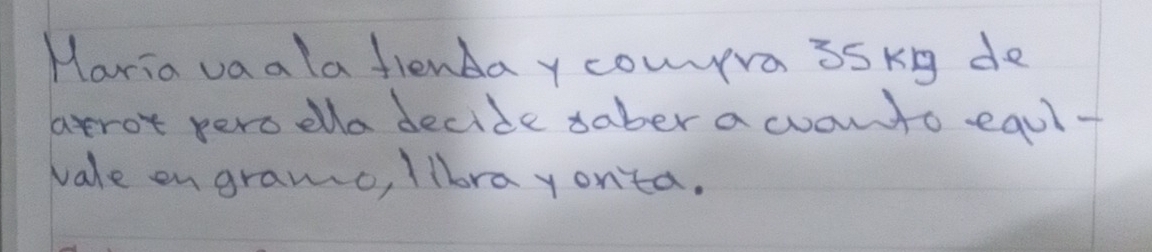 Maria va a la tienda y compra 35 kg de
arroz pero ella decide saber a cuanto equi-
vale en gramo, libra y onza.